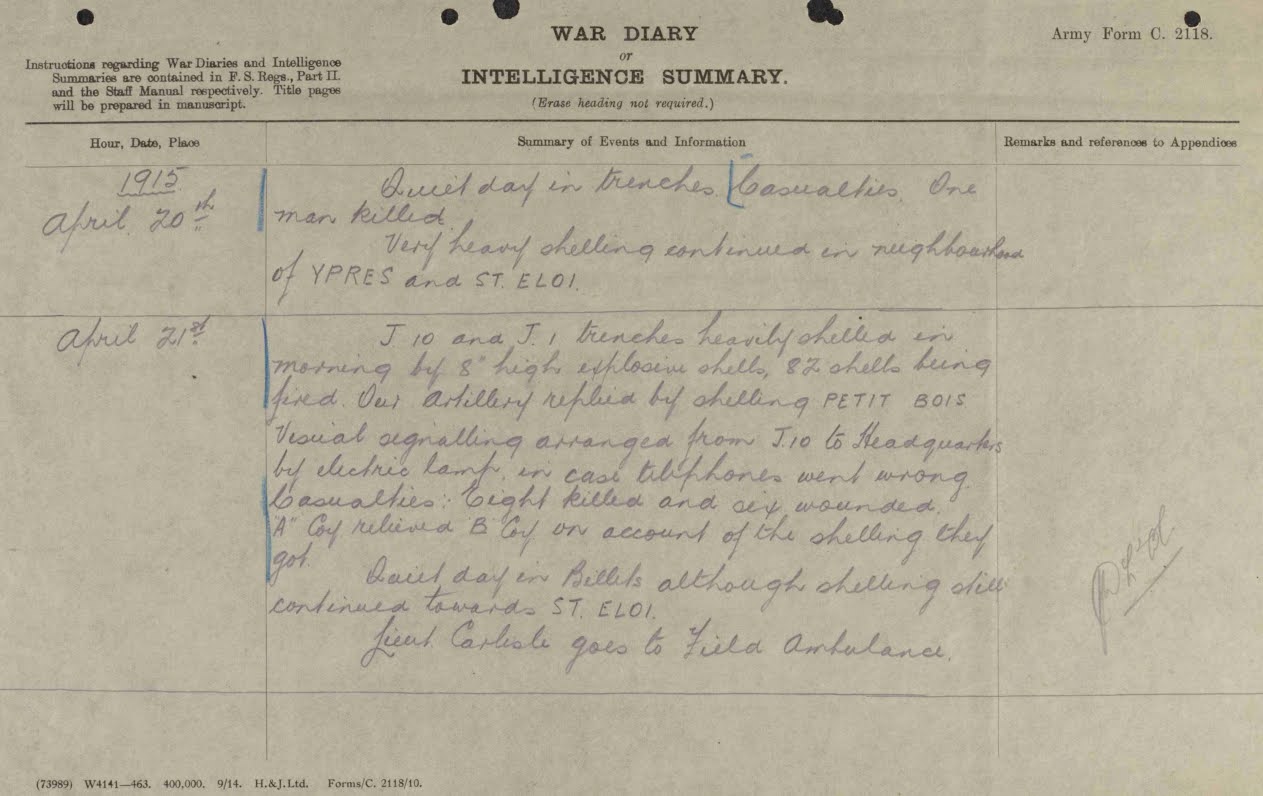 WAR DIARY
or
INTELLIGENCE SUMMARY.
(Erase heading not required.)
Army Form C. 2118.
Instructions regarding War Diaries and Intelligence
Summaries are contained in F. S. Regs., Part II.
and the Staff Manual respectively. Title pages
will be prepared in manuscript.
Hour, Date, Place
Summary of Events and Information
Remarks and references to Appendices
1915
April 20th
Quiet day in trenches. Casualties. One
man killed.
Very heavy shelling continued in neighbourhood
of YPRES and ST. ELOI.
April 21st
J. 10 and J. 1 trenches heavily shelled in
morning by 8" high explosive shells, 82 shells being
fired. Our Artillery replied by shelling PETIT BOIS
Visual signalling arranged from J.10 to Headquarters
by electric lamp, in case telephones went wrong.
Casualties: Eight killed and six wounded.
"A" Coy relieved B Coy on account of the shelling they
got.
Quiet day in Billets although shelling still
continued towards ST. ELOI.
Lieut. Carlisle goes to Field Ambulance.
(73989) W4141—463. 400,000. 9/14. H.&J.Ltd. Forms/C. 2118/10.